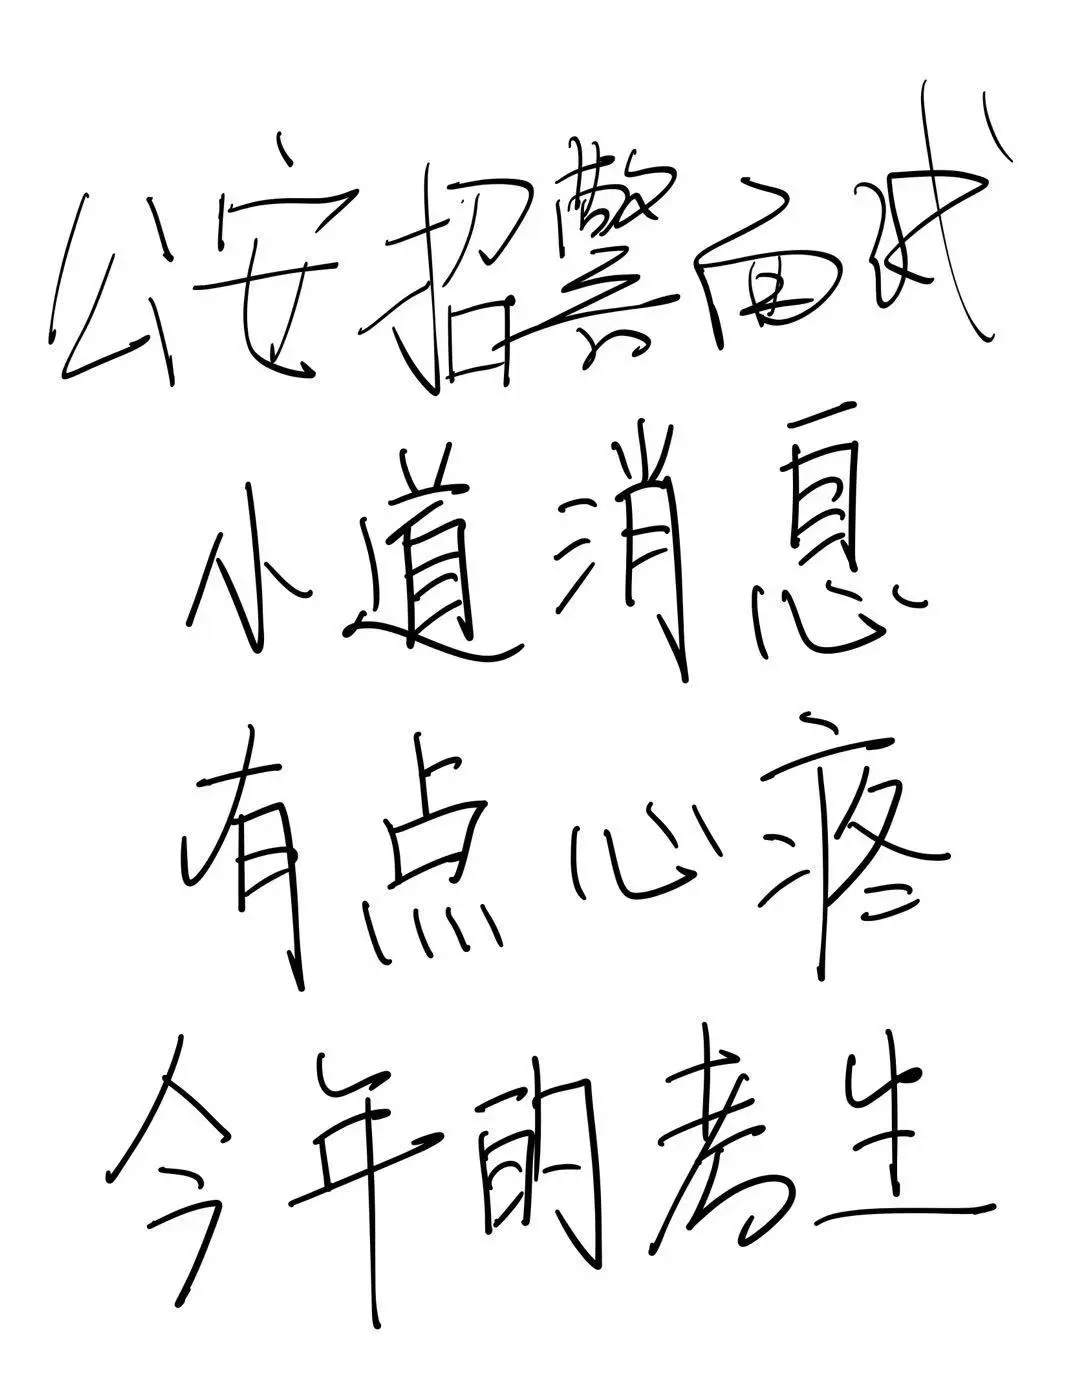 公安招警面试
小道消息
有点心疼
今年的考生